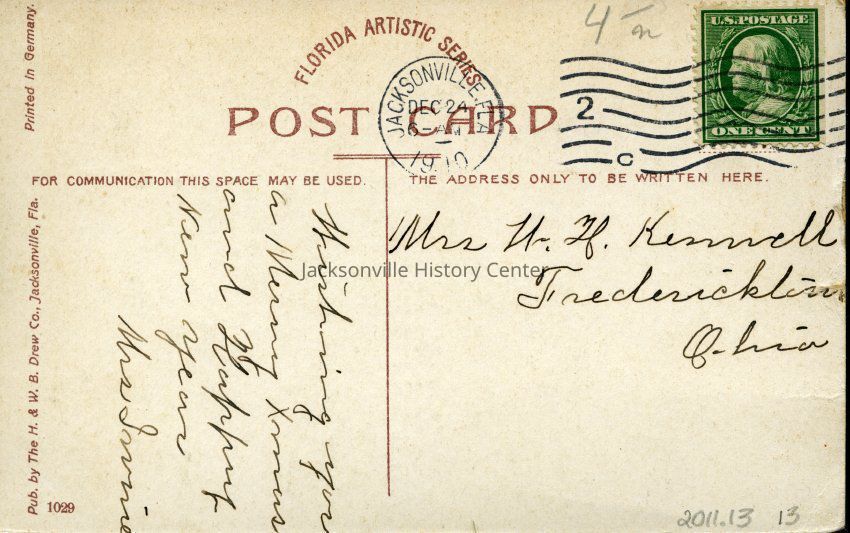 Printed in Germany.
FLORIDA ARTISTIC SERIES
4
U.S. POSTAGE
ONE CENT
JACKSONVILLE, FLA
DEC 24
6-AM
1910
2
C
POST CARD
FOR COMMUNICATION THIS SPACE MAY BE USED.
THE ADDRESS ONLY TO BE WRITTEN HERE.
Wishing you
a Merry Xmas
and Happy
New Year
Mrs Irvine
Mrs W. H. Kennell
Fredericktown
Ohio
Jacksonville History Center
Pub. by The H. & W. B. Drew Co., Jacksonville, Fla.
1029
2011.13 13